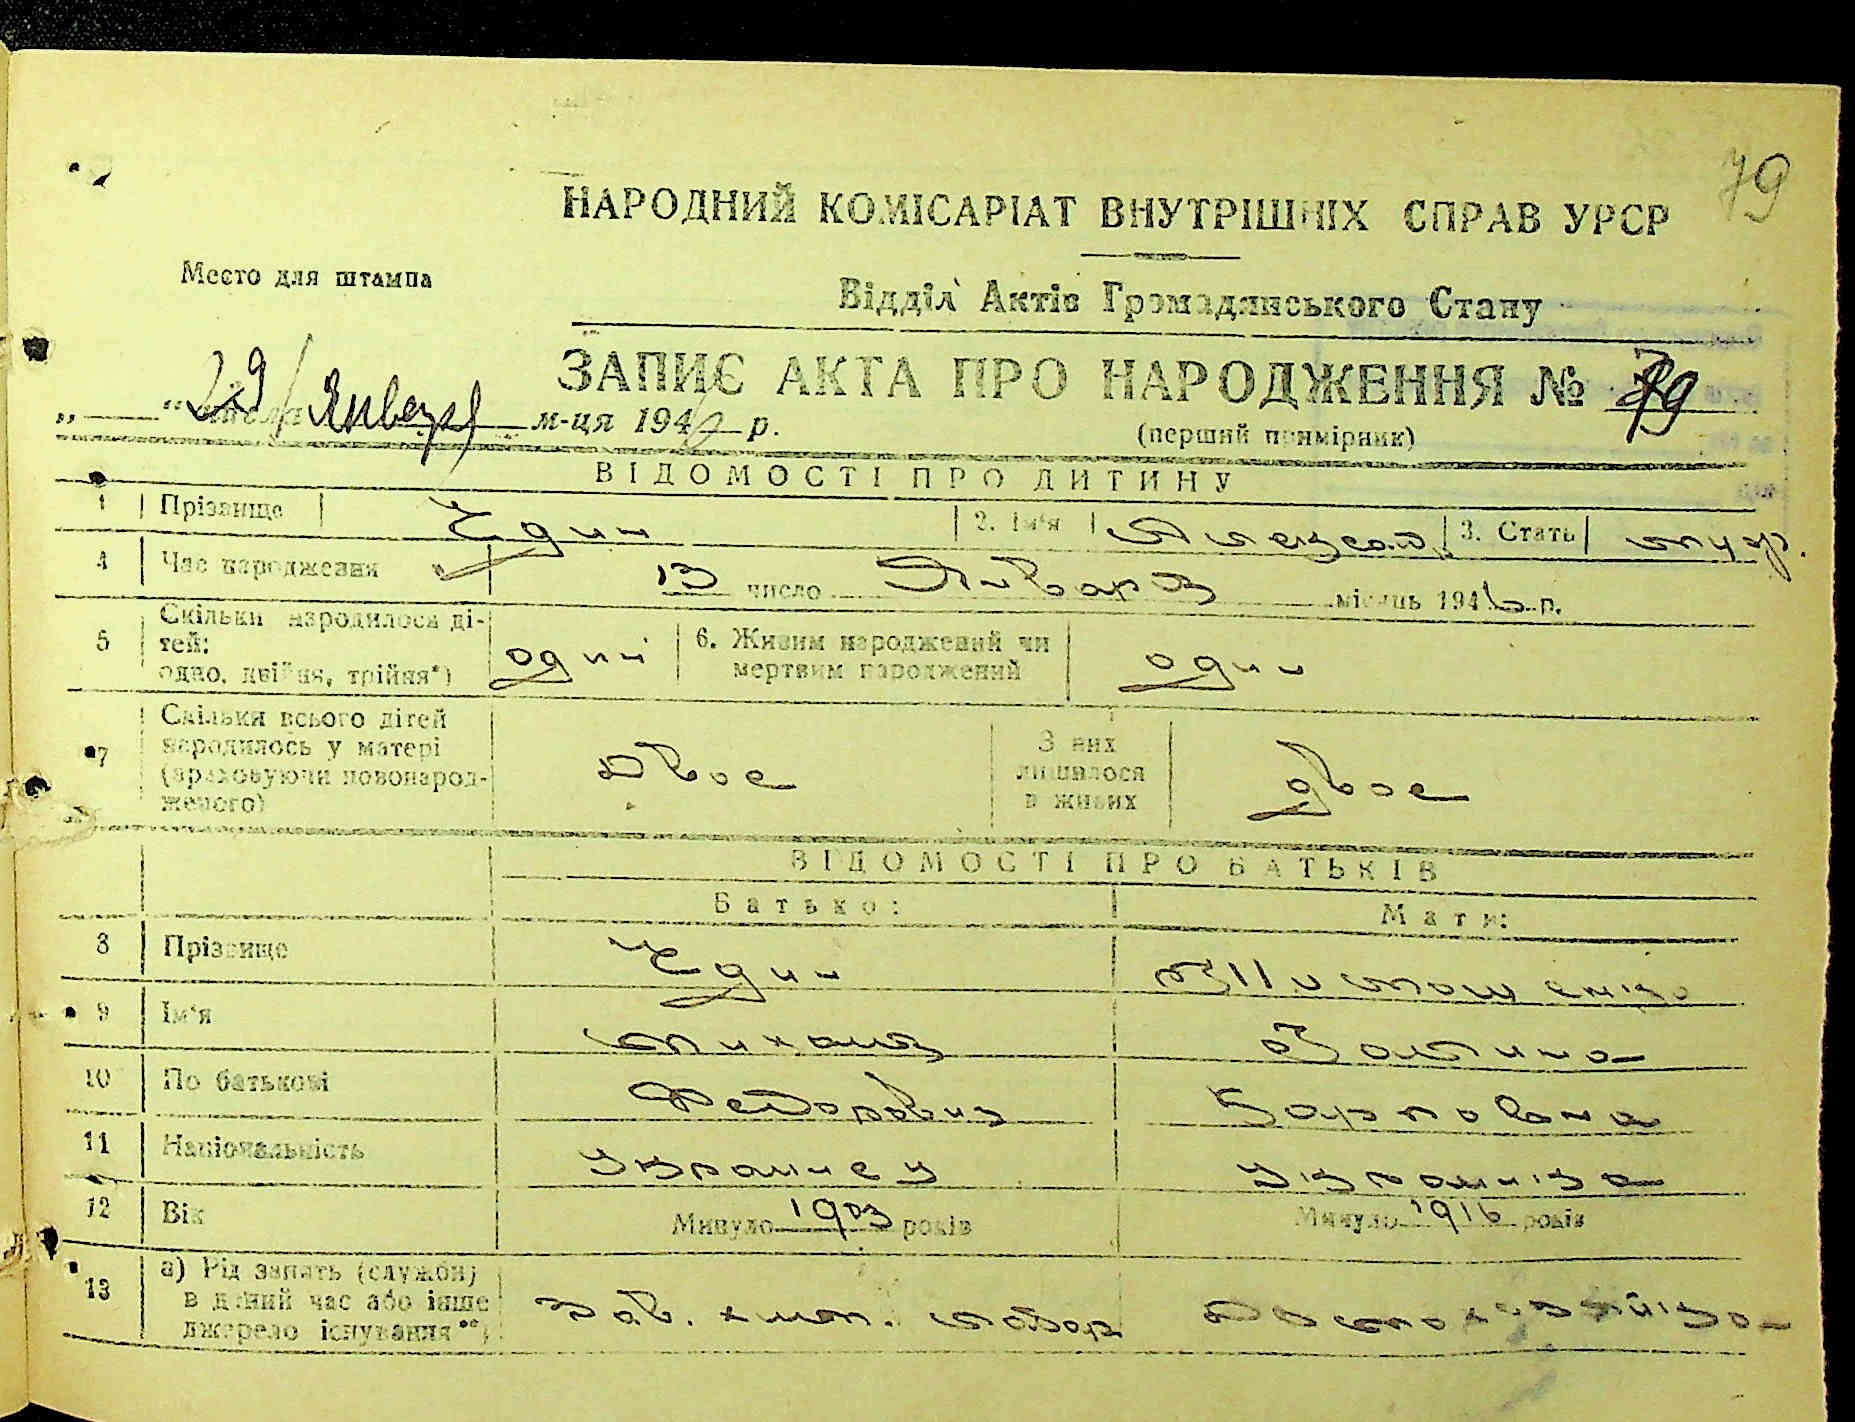 79
НАРОДНИЙ КОМІСАРІАТ ВНУТРІШНІХ СПРАВ УРСР
Место для штампа
Відділ Актів Громадянського Стану
ЗАПИС АКТА ПРО НАРОДЖЕННЯ № 79
„29“ числа Января м-ця 1946 р.
(перший примірник)
ВІДОМОСТІ ПРО ДИТИНУ
1 Прізвище Чедин 2. Ім'я 3. Стать муж.
4 Час народження 13 число Января місяць 1946 р.
5 Скільки народилося дітей: одно, двійня, трійня*) один 6. Живим народжений чи мертвим народжений один
7 Скільки всього дітей народилось у матері (враховуючи новонародженого) двое З них лишилося в живих двое
ВІДОМОСТІ ПРО БАТЬКІВ
Батько: Мати:
8 Прізвище Чедин
9 Ім'я Михаил Галина
10 По батькові Федорович Карповна
11 Національність Украинец Украинка
12 Вік Минуло 1903 років Минуло 1916 років
13 а) Рід занять (служби) в даний час або інше джерело існування**) Зав. Домохозяйка